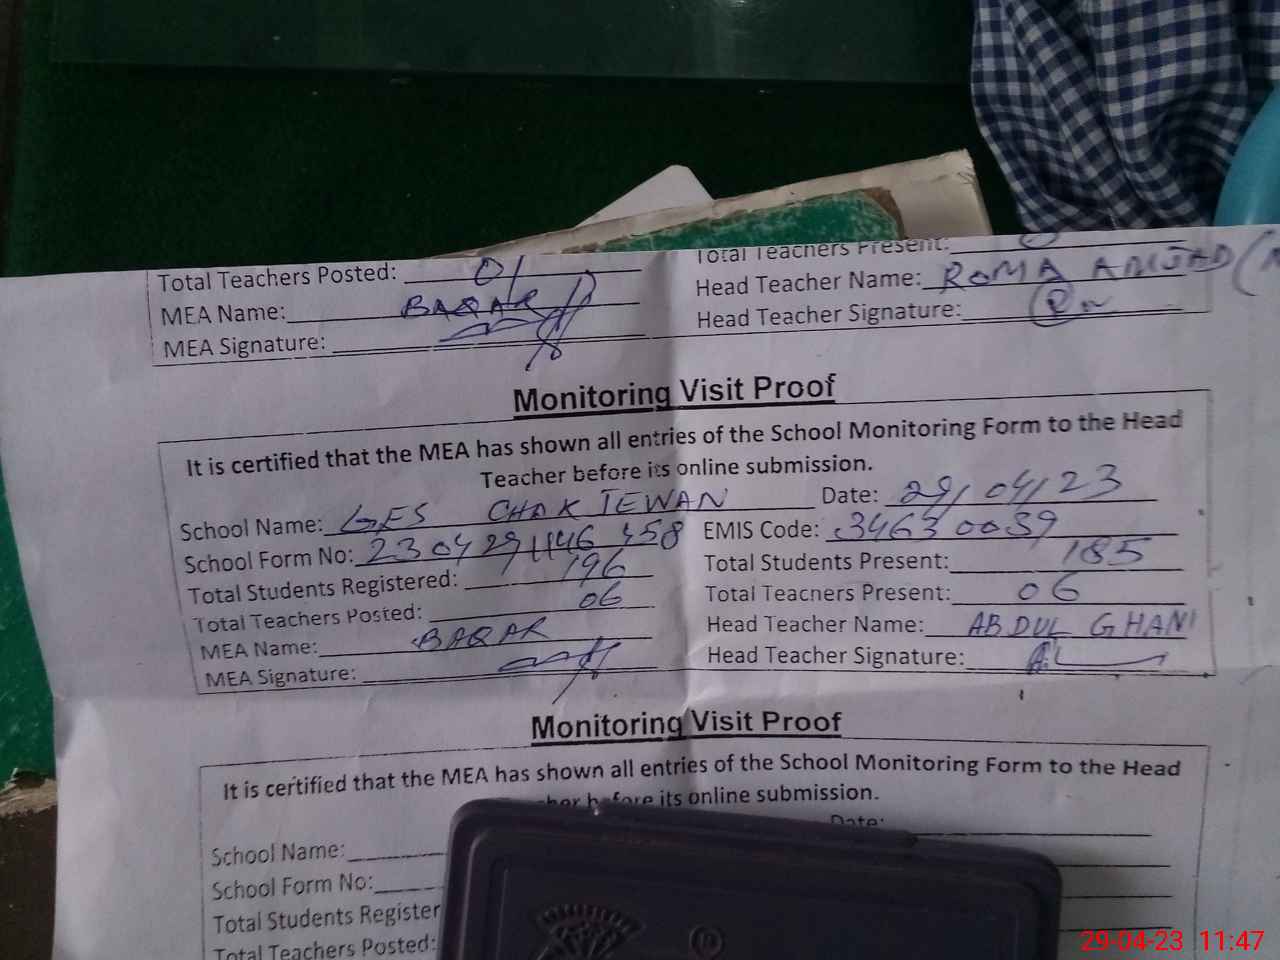 Total Teachers Posted: 01 Total Teachers Present:
MEA Name: BAQAR Head Teacher Name: ROMA AMJAD
MEA Signature: Head Teacher Signature:
Monitoring Visit Proof
It is certified that the MEA has shown all entries of the School Monitoring Form to the Head
Teacher before its online submission.
School Name: GES CHAK JEWAN Date: 29/04/23
School Form No: 2304291146458 EMIS Code: 34630039
Total Students Registered: 196 Total Students Present: 185
Total Teachers Posted: 06 Total Teachers Present: 06
MEA Name: BAQAR Head Teacher Name: ABDUL GHANI
MEA Signature: Head Teacher Signature:
Monitoring Visit Proof
It is certified that the MEA has shown all entries of the School Monitoring Form to the Head
before its online submission.
Date:
School Name:
School Form No:
Total Students Register
Total Teachers Posted:
29-04-23 11:47